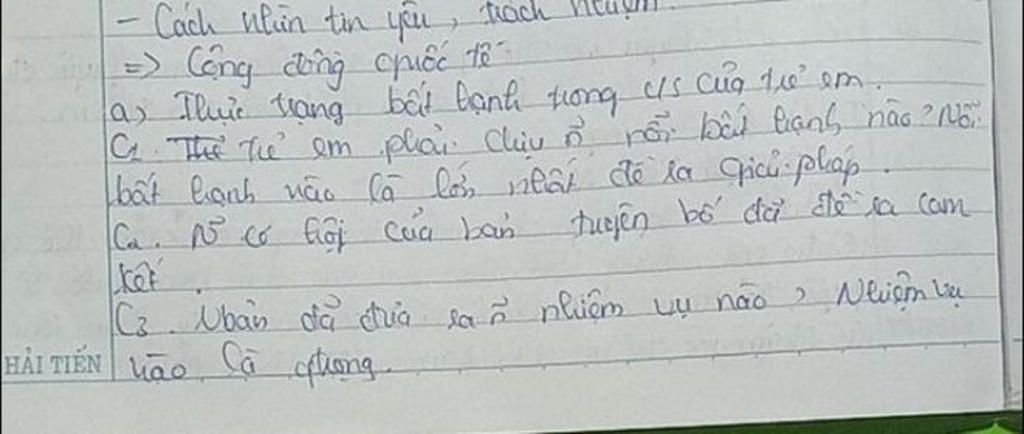 - Cách nhìn tin yêu, trách nhiệm.
=> Cộng đồng quốc tế
a) Thực trạng bất hạnh trong c/s của trẻ em.
C1. Thể Trẻ em phải chịu n~ nỗi bất hạnh nào? Nỗi
bất hạnh nào là lớn nhất đề ra giải pháp.
C2. N~ cơ hội của bản tuyên bố đã đề ra cam
kết.
C3. Vbản đã đưa ra n~ nhiệm vụ nào, Nhiệm vụ
HẢI TIẾN nào là qtrọng.